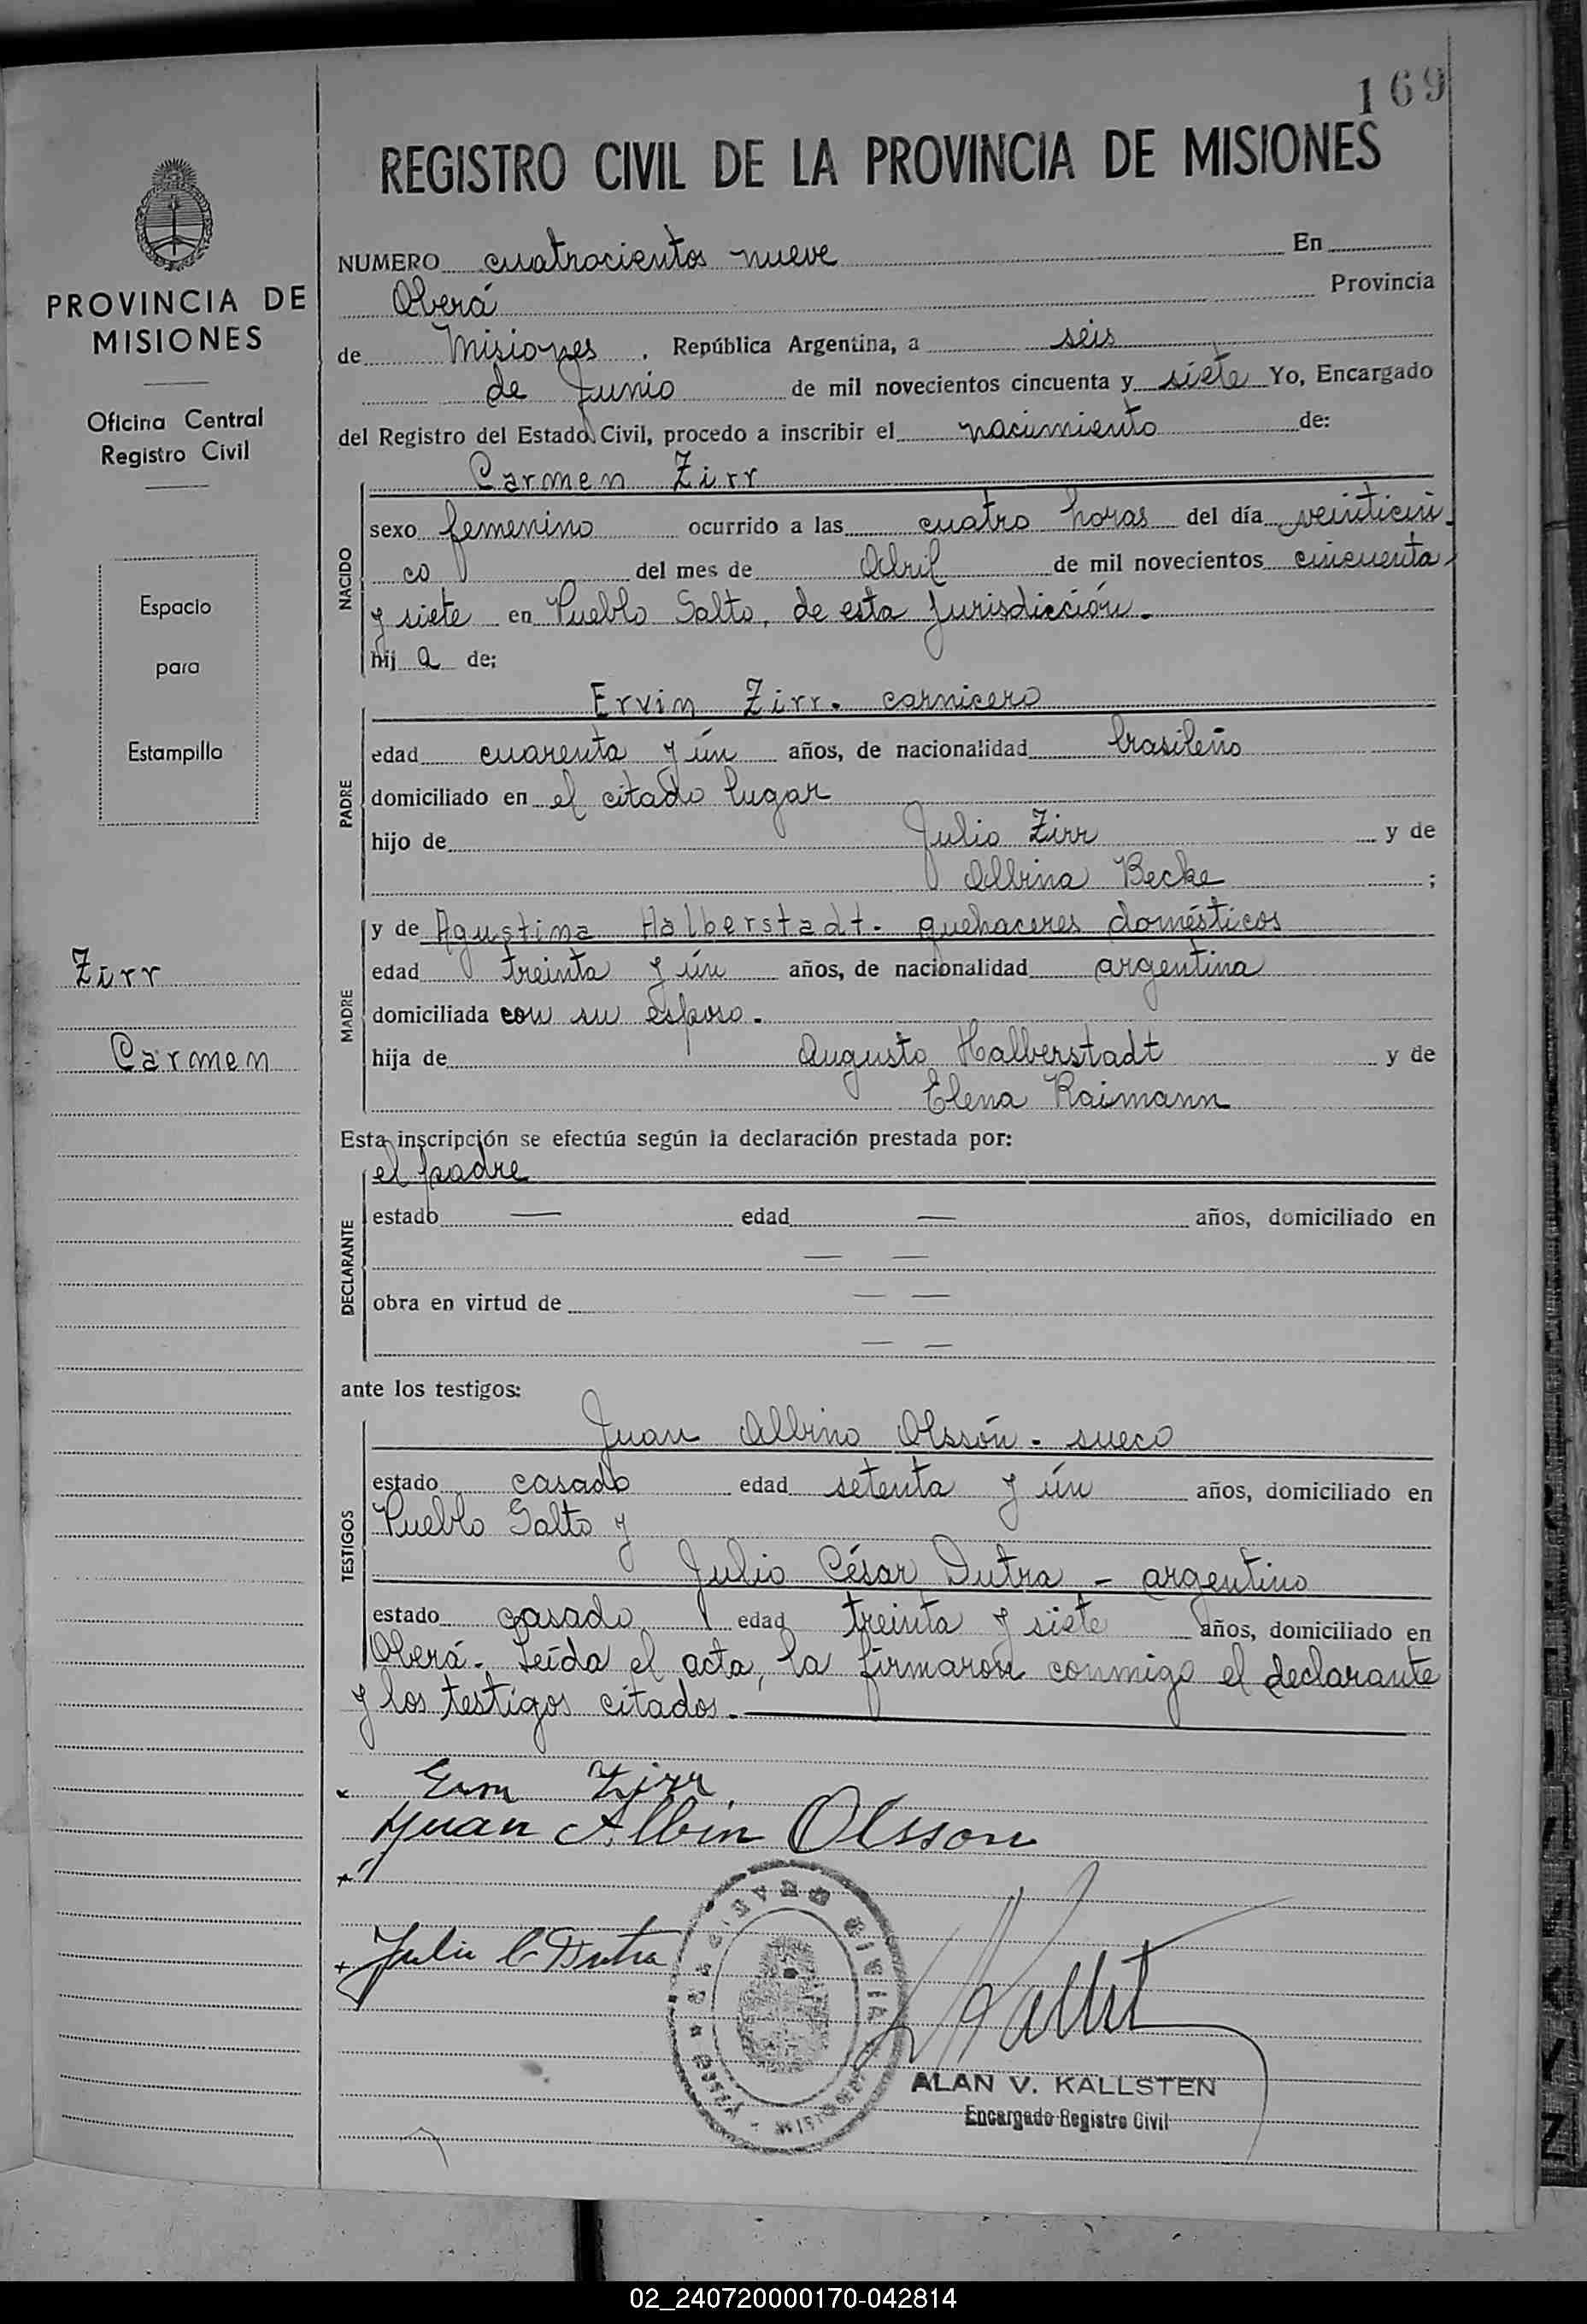 169
REGISTRO CIVIL DE LA PROVINCIA DE MISIONES
PROVINCIA DE
MISIONES
Oficina Central
Registro Civil
Espacio
para
Estampilla
Zirr
Carmen
NUMERO cuatrocientos nueve En
Oberá Provincia
de Misiones. República Argentina, a seis
de Junio de mil novecientos cincuenta y siete Yo, Encargado
del Registro del Estado Civil, procedo a inscribir el nacimiento de:
NACIDO
Carmen Zirr
sexo femenino ocurrido a las cuatro horas del día veinticin-
co del mes de Abril de mil novecientos cincuenta
y siete en Pueblo Salto, de esta Jurisdicción.-
hij a de;
PADRE
Ervin Zirr. carnicero
edad cuarenta y ún años, de nacionalidad brasileño
domiciliado en el citado lugar
hijo de Julio Zirr y de
Albina Becke ;
MADRE
y de Agustina Halberstadt. quehaceres domésticos
edad treinta y ún años, de nacionalidad argentina
domiciliada con su esposo.-
hija de Augusto Halberstadt y de
Elena Raimann
Esta inscripción se efectúa según la declaración prestada por:
DECLARANTE
el padre
estado — edad — años, domiciliado en
— —
obra en virtud de — —
— —
ante los testigos:
TESTIGOS
Juan Albino Olssón - sueco
estado casado edad setenta y ún años, domiciliado en
Pueblo Salto y
Julio César Dutra - argentino
estado casado edad treinta y siete años, domiciliado en
Oberá.- Leída el acta, la firmaron conmigo el declarante
y los testigos citados.-
Zirr
Juan Albin Olsson
Julio C Dutra
ALAN V. KALLSTEN
Encargado Registro Civil
02_240720000170-042814